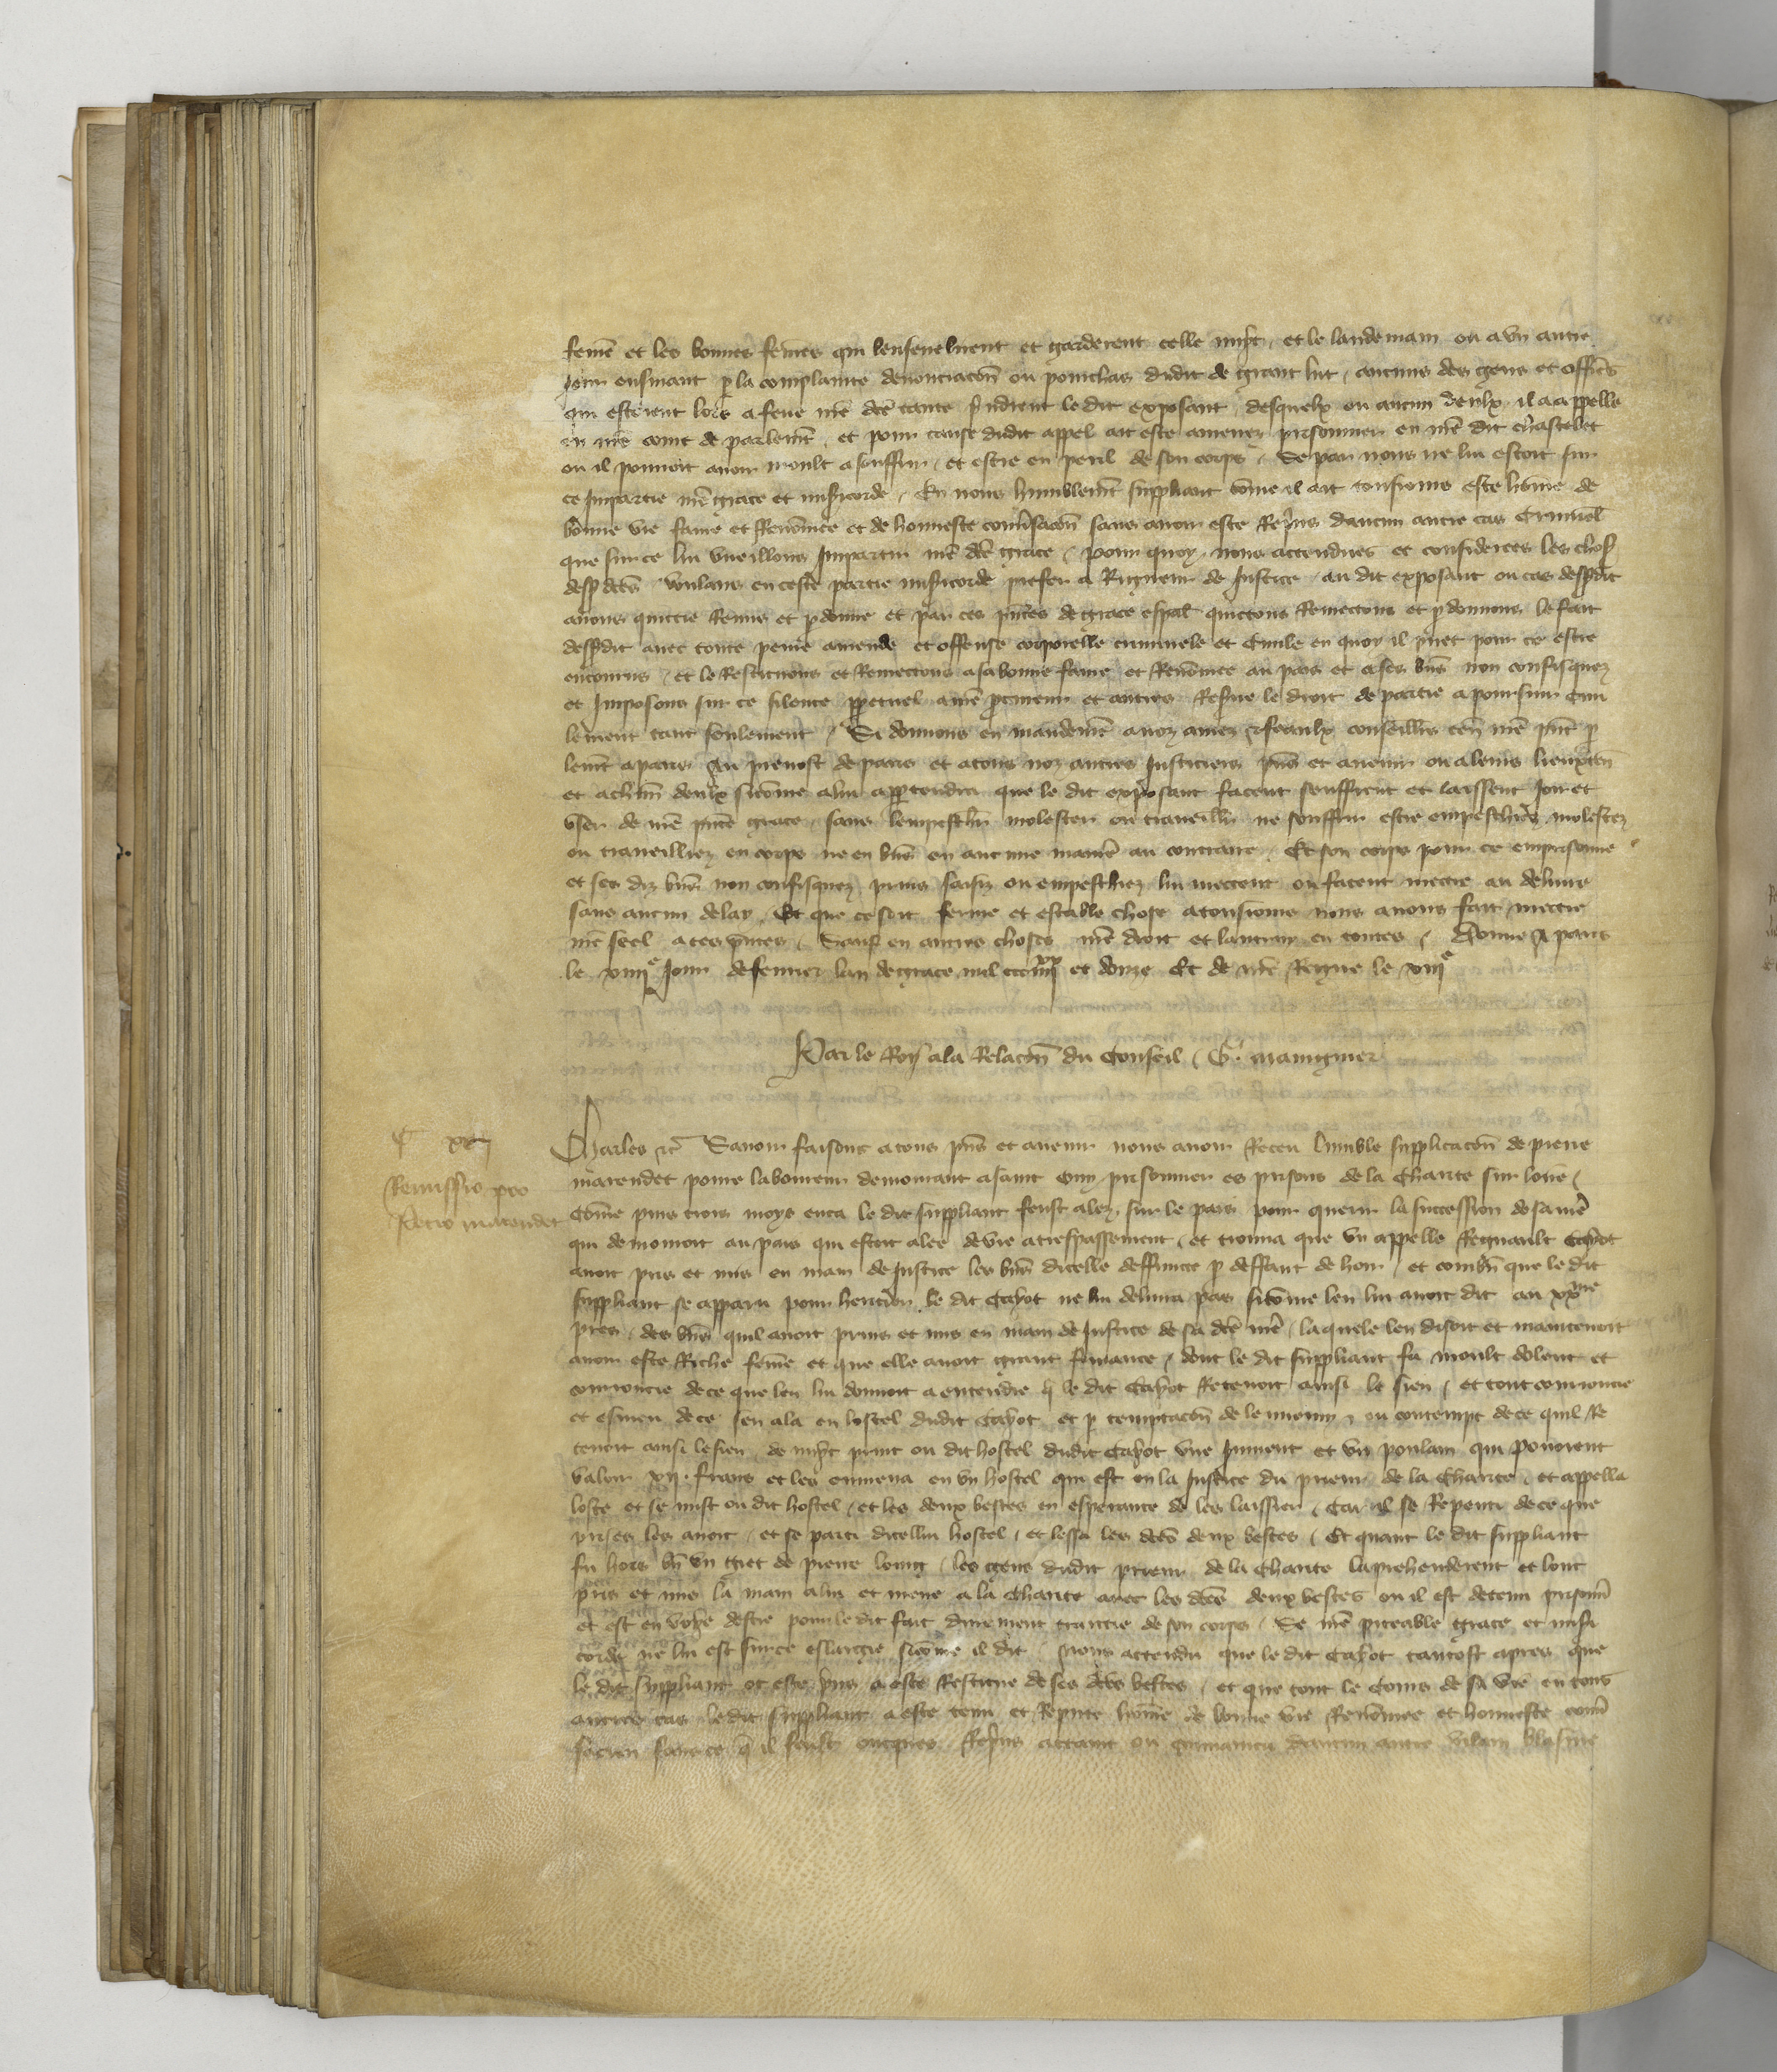 feme et les bonnes femes qui lensevelirent et garderent celle nuyt, et le landemain ou a un autre
jour ensuivant p la complainte denonciacon ou pourchas dudit de grant lut, aucuns des gens et offices
qui estoient lors a feue nre dce tante prindrent le dit exposant, desquelx ou aucun deulx il a appelle
en nre court de parlemt, et pour cause dudit appel ait este amenez prisonnier en nre dit chastelet
ou il pourroit avoir moult a souffrir, et estre en peril de son corps, Se par nous ne lui estoit sur
ce impartie nre grace et misicorde, En nous humblemt suppliant come il ait tousiours este home de
bonne vie fame et Renomee et de honneste conversacon sans avoir este Repris daucun autre cas Criminel
que sur ce lui vueillons Impartir nre dce grace, pour quoy nous attendues et considerees les choses
desp dces voulans en ceste partie misicorde preferer a Rigueur de Justice au dit exposant ou cas desspdit
avons quictie Remis et pdonne et par ces pntes de grace espal quictons Remectons et pdonnons le fait
desspdit avec toute peine amende et offense corporelle criminele et Civile en quoy il puet pour ce estre
encourus, et le Restituons et Remectons a sa bonne fame et Renomee au pais et a ses bns non confisquez
et Imposons sur ce silence ppetuel a nre procureur et autres Reserve le droit de partie a poursuir Civi
lement tant seulement, Si donnons en mandemt a noz amez et feaulx conseillrs ten nre pnt p
lemt a paris Au prevost de paris et a tous noz autres Justiciers pns et avenir ou a leurs lieuxten
et a chun deulx sicome a lui appartendra que le dit exposant facent seuffrent et laissent Joir et
User de nre pnte grace, sans lempeschr molester ou traveillr ne souffrir estre empeschiez molestez
ou traveilliez en corps ne en bns en aucune maniere au contraire, Et son corps pour ce emprisonne
et ses diz bns non confisquez prins saisiz ou empeschiez lui mectent ou facent mectre au delivre
sans aucun delay, Et que ce soit ferme et estable chose a tousiours nous avons fait mectre
nre seel a ces pntes, Sauf en autres choses nre droit et lautruy en toutes, Donne a paris
le xiiii e Jour de fevrier lan de grace mil ccc iiii xx et douze Et de nre Regne le xiii e
Par le Roy a la Relacon du Conseil, G. manuguier
Charles etc Savoir faisons a tous pns et avenir nous avoir Receu lumble supplicacon de pierre
marendet povre laboureur demourant a saint Cuy prisonnier es prisons de la Charite sur loire,
Come puis trois moys enca le dit suppliant feust alez sur le pais pour querir la succession de sa mere
qui demouroit au pais qui estoit alee de vie a trespassement, et trouva que un appelle Regnault Cayot
avoit pris et mis en main de Justice les bns dicelle deffuncte p deffaut de hoir, et combn que le dit
suppliant se apparu pour heritier le dit Cayot ne lui delivra pas sicome len lui avoit dit au xx
pres, des bns quil avoit prins et mis en main de Justice de sa dce mere, laquele len disoit et maintenoit
avoir este Riche feme et que elle avoit grant finance, dont le dit suppliant fu moult dolent et
courroucie de ce que len lui donnoit a entendre q le dit Cayot Retenoit ainsi le sien, et tout courroucie
et esmeu de ce sen ala en lostel dudit Cayot et p temptacon de lennemy, ou contempt de ce quil Re
tenoit ainsi le sien, de nuyt print ou dit hostel dudit Cayot une Jument et un poulain qui povoient
valoir xii frans et les enmena en un hostel qui est en la Justice du prieur de la Charite, et appella
loste et se mist ou dit hostel, et les deux bestes en esperance de les laissier, Car il se Repenti de ce que
prises les avoit, et se parti dicellui hostel, et lessa les dces deux bestes, Et quant le dit suppliant
fu hors bn un giet de pierre loing, les gens dudit prieur de la Charite laprehenderent et lont
pris et mis la main a lui et mene a la Charite avec les dces deux bestes ou il est detenu prisonr
et est en voye destre pour le dit fait durement traictie de son corps, Se nre piteable grace et misi
corde ne lui est sur ce eslargie sicome il dit, Nous attendu que le dit Cayot tantost apres que
le dit suppliant ot este pris a este Restitue de ses dces bestes, et que tout le Cours de sa vie en tous
autres cas le dit suppliant a este tenu et Repute home de bonne vie Renomee et honneste conver
sacion sans ce q il feust oncques Repris attaint ou convaincu daucun autre vilain blasme
C xxi
Remissio pro
Petro marendet